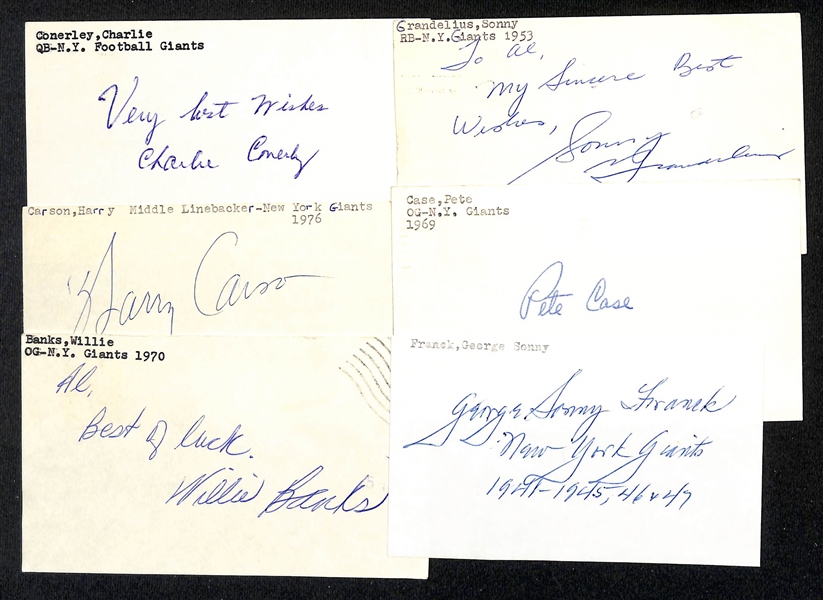 Conerley,Charlie
QB-N.Y. Football Giants
Very best Wishes
Charlie Conerly
Grandelius,Sonny
RB-N.Y.Giants 1953
To Al,
My Sincere Best
Wishes, Sonny
Grandelius
Carson,Harry Middle Linebacker-New York Giants
1976
Harry Carson
Case,Pete
OG-N.Y. Giants
1969
Pete Case
Banks,Willie
OG-N.Y. Giants 1970
Al,
Best of luck.
Willie Banks
Franck,George Sonny
George Sonny Franck
New York Giants
1941-1945, 46 & 47